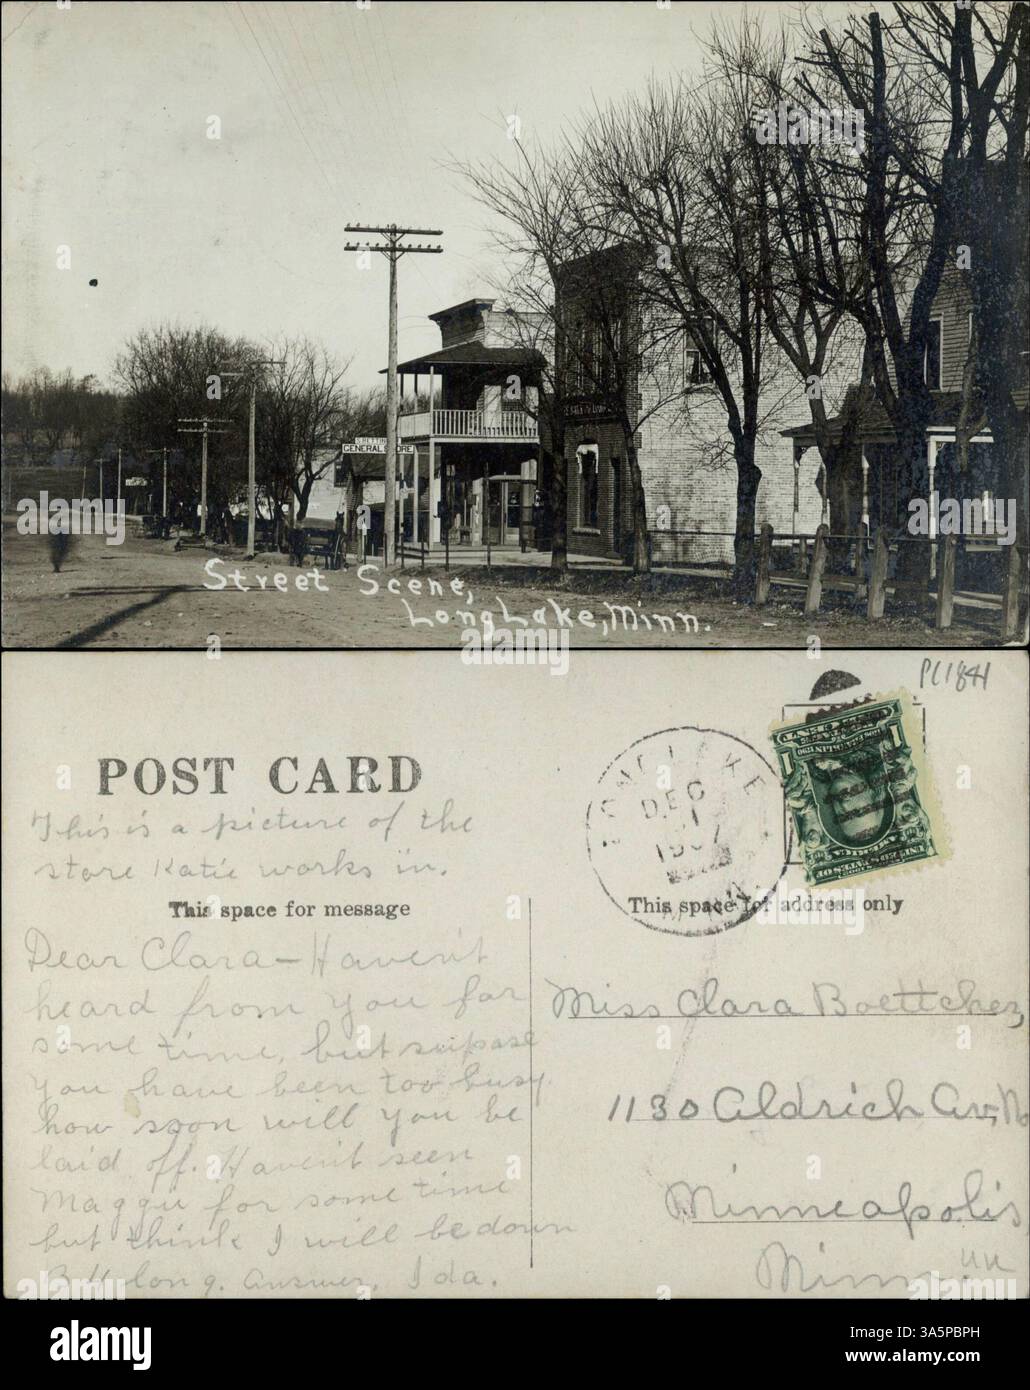 S. BETTIN
GENERAL STORE
Street Scene,
Long Lake, Minn.
PC1841
POST CARD
This is a picture of the
store Katie works in.
LONG LAKE
DEC
1907
MINN
1 1
This space for message
This space for address only
Dear Clara - Haven't
heard from you for
some time, but supose
you have been too busy.
how soon will you be
laid off. Haven't seen
Maggie for some time
but think I will be down
B 4 long. answer. Ida.
Miss Clara Boettcher,
1130 Aldrich Av, No
Minneapolis
Minn.
alamy
Image ID: 2A5PBPH
www.alamy.com